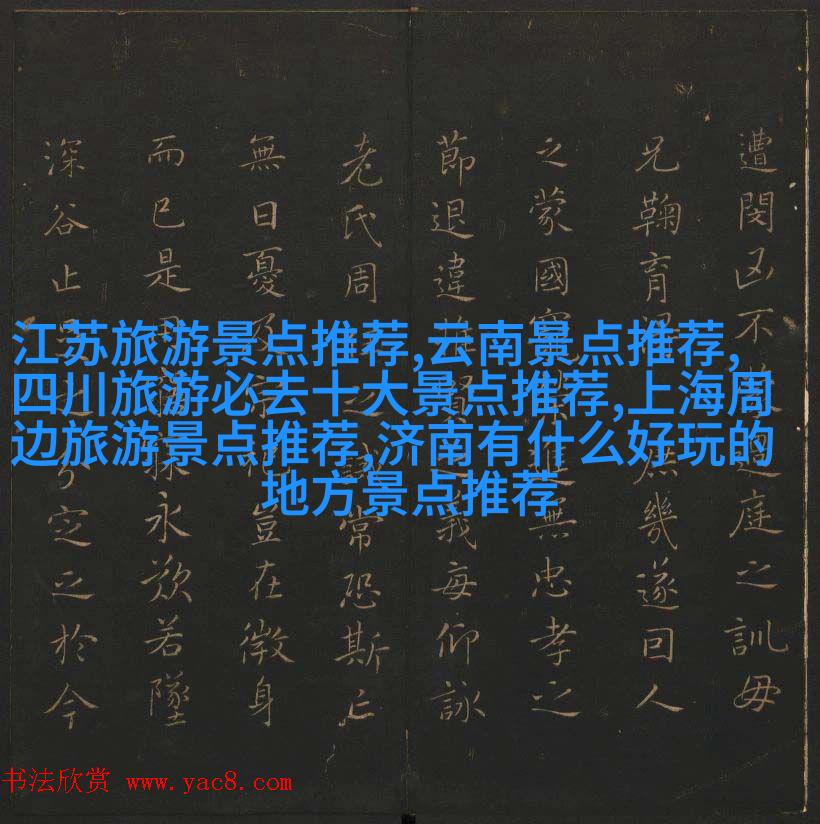 江苏旅游景点推荐,云南景点推荐,
四川旅游必去十大景点推荐,上海周
边旅游景点推荐,济南有什么好玩的
地方景点推荐
遭閔凶不過庭之訓毋
兄鞠育庶幾遂因人
之蒙國進無忠孝之
節退違義每仰詠
老氏周之誡常恐斯亡
無日憂豈在微身
而已是永歎若墜
深谷止分定之於今
书法欣赏 www.yac8.com